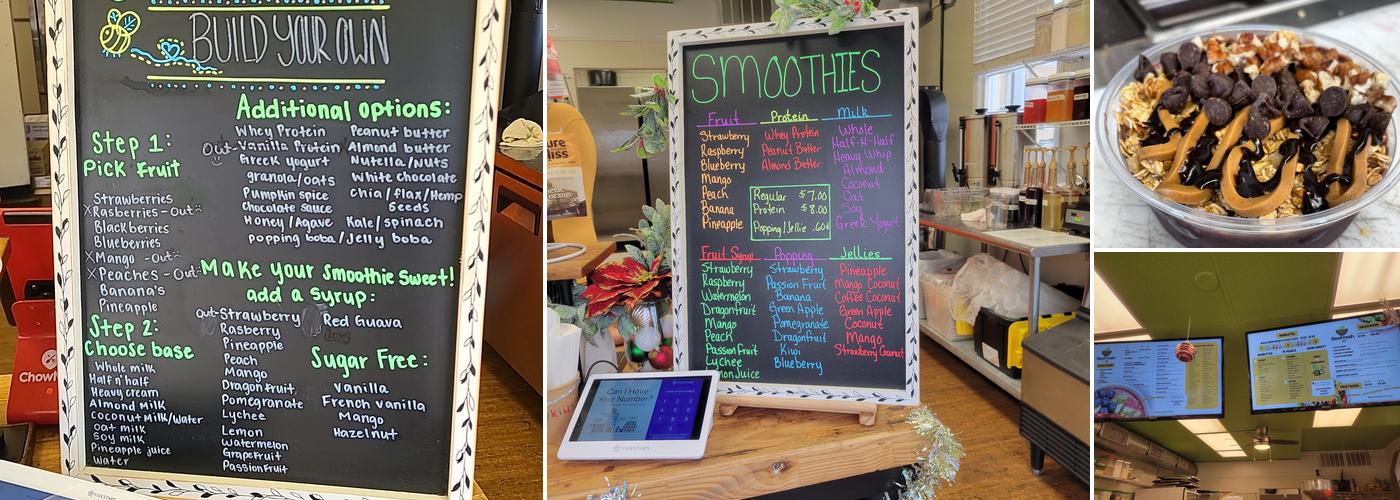 BUILD YOUR OWN
Additional options:
Whey Protein Peanut butter
Out-Vanilla Protein Almond butter
Greek Yogurt Nutella/Nuts
granola/oats White chocolate
Pumpkin spice chia/flax/Hemp
Chocolate Sauce Seeds
Honey/Agave Kale/spinach
popping boba/Jelly boba
Step 1:
Pick Fruit
Strawberries
X Rasberries - Out
Blackberries
Blueberries
X Mango - Out
X Peaches - Out
Banana's
Pineapple
Step 2:
Choose base
Whole milk
Half n' half
Heavy cream
Almond Milk
Coconut Milk/Water
Oat milk
Soy milk
Pineapple juice
Water
Make your Smoothie Sweet!
add a Syrup:
Out-Strawberry
Rasberry
Pineapple
Peach
Mango
Dragonfruit
Pomegranate
Lychee
Lemon
Watermelon
Grapefruit
Passionfruit
Red Guava
Sugar Free:
Vanilla
French Vanilla
Mango
Hazelnut
Chow
FIVESTARS
SMOOTHIES
Fruit
Strawberry
Raspberry
Blueberry
Mango
Peach
Banana
Pineapple
Protein
Whey Protein
Peanut Butter
Almond Butter
Regular $7.00
Protein $8.00
Popping/Jellie .60¢
Milk
Whole
Half-N-Half
Heavy Whip
Almond
Coconut
Oat
Soy
Greek Yogurt
Fruit Syrup
Strawberry
Raspberry
Watermelon
Dragonfruit
Mango
Peach
Passion Fruit
Lychee
Lemon Juice
Popping
Strawberry
Passion Fruit
Banana
Green Apple
Pomegranate
Dragonfruit
Kiwi
Blueberry
Jellies
Pineapple
Mango Coconut
Coffee Coconut
Green Apple
Coconut
Mango
Strawberry Coconut
Can I Have
Your Number?
FIVESTARS